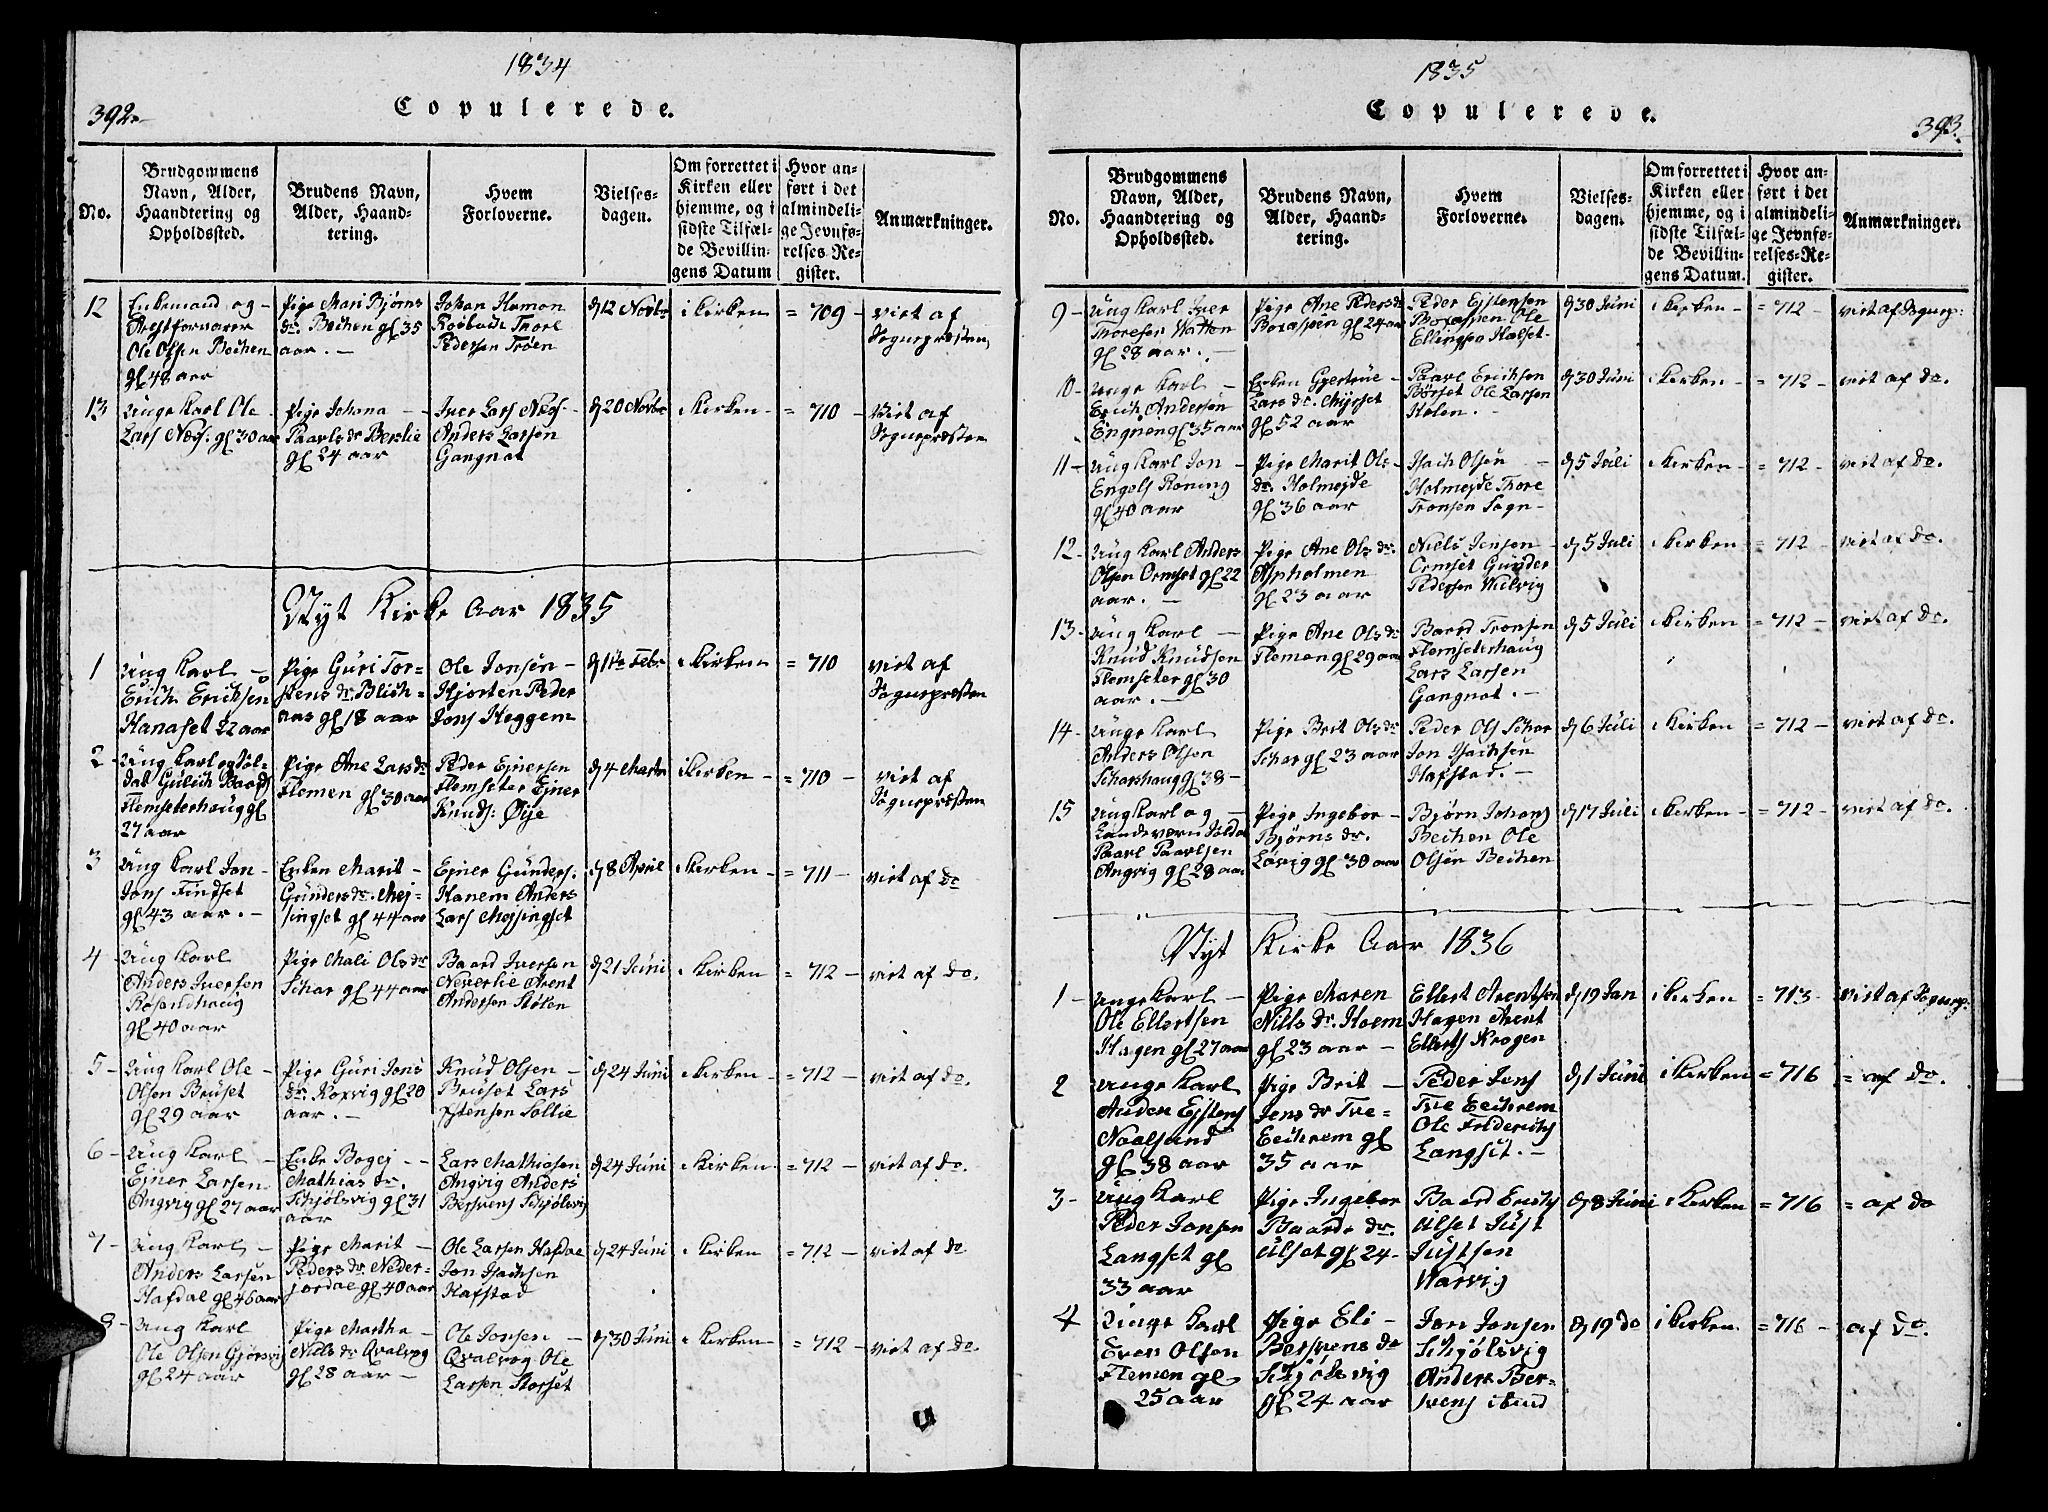 1834
392.
Copulerede.
No.
Brudgommens
Navn, Alder,
Haandtering og
Opholdssted.
Brudens Navn,
Alder, Haand-
tering.
Hvem
Forloverne.
Vielses-
dagen.
Om forrettet i
Kirken eller
hjemme, og i
sidste Tilfæl-
de Bevillin-
gens Datum
Hvor an-
ført i det
almindeli-
ge Jevnfø-
relses-Re-
gister.
Anmærkninger.
12
Enkemand og -
Arestforvarer
Ole Olsen Bechen
gl 48 aar
Pige Mari Bjørns
dr. Bechen gl 35
aar. -
Johan Hamon
Trore
Pedersen Trøen
d 12 Novbr
i Kirken
= 709 -
viet af
Sognepræsten
13
Unge Karl Ole -
Lars Næs. gl 30 aar
Pige Johana -
Paarls dr Berslie
gl 24 aar
Iver Lars Næs. -
Anders Larsen
Gangnat
d 20 Novbr
i Kirken -
= 710 -
Viet af
Sognepræsten
Nyt Kirke Aar 1835
1
Ung Karl -
Erich Erichsen
Hanaset 22 aar
Pige Guri Tor-
stens dr. Blich-
nas gl 18 aar
Ole Jonsen -
Hjorten Peder
Jons Heggem
Febr
i Kirken
= 710
viet af
Sognepræsten
2 -
Ung Karl og Sol-
dat Gulich Baards
Flemseterhaug gl
27 aar
Pige Ane Lars dr
Flemen gl 30 aar
Peder Ejnersen
Flemseter Ejner
Knuds: Øye
d 4 Marts
i Kirken -
= 710 -
viet af
Sognepræsten
3
Ung Karl Jon -
Jons Findset
gl 43 aar. -
Enken Marit -
Gunders dr. Mej-
singset gl 44 aar
Ejner Gunders.
Hanem Anders
Lars Mejsingset
d 8 April
i Kirken -
= 711 -
viet af do
4 -
Ung Karl
Anders Iversen
Røsandhaug
gl 40 aar
Pige Mali Ols dr
Schar gl 44 aar
Baard Iversen
Neverlie Arent
Andersen Stølen
d 21 Juni
i Kirken
= 712 -
viet af do.
5 -
Ung Karl Ole -
Olsen Bruset
gl 29 aar
Pige Guri Jons
dr. Roxvig gl 20
aar. -
Knud Olsen -
Bruset Lars
Estensen Sollie
d 24 Juni
i Kirken -
= 712 -
viet af do.
6 -
Ung Karl -
Ejner Larsen
Angvig gl 27 aar
Enke Bogej -
Mathias dr.
Schjølsvig gl 31
aar
Lars Mathiasen
Angvig Anders
Bersvens Schjølsvig
d 24 Juni
i Kirken
= 712 -
viet af do.
7 -
Ung Karl -
Anders Larsen
Hafdal gl 46 aar
Pige Marit -
Peders dr Neder-
jordal gl 40 aar
Ole Larsen Hafdal
Jon Isachsen
Hafstad
d 24 Juni
i Kirken
= 712 -
viet af do
8 -
Ung Karl
Ole Olsen Gjørsvig
gl 24 aar
Pige Martha -
Niels dr Qvalvog
gl 28 aar -
Ole Jonsen -
Qvalvog Ole
Larsen Storset
d 30 Juni
i Kirken -
= 712 -
viet af do.
1835
393.
Copulerede.
No.
Brudgommens
Navn, Alder,
Haandtering og
Opholdssted.
Brudens Navn,
Alder, Haand-
tering.
Hvem
Forloverne.
Vielses-
dagen.
Om forrettet i
Kirken eller
hjemme, og i
sidste Tilfæl-
de Bevillin-
gens Datum.
Hvor an-
ført i det
almindeli-
ge Jevnfø-
relses-Re-
gister.
Anmærkninger.
9 -
Ung Karl Iver
Thoresen Watten
gl 28 aar. -
Pige Ane Peders dr
Boxaspen gl 24 aar
Peder Ejstensen
Boxaspen Ole
Ellingsen Halset -
d 30 Juni
i Kirken -
= 712 -
viet af Sognep:
10 -
Unge Karl -
Erich Andersen
Engnen gl 35 aar
Enken Gjertrue -
Lars dr. Myrset
gl 52 aar
Paarl Erichsen
Børset Ole Larsen
Holen. -
d 30 Juni
i Kirken -
= 712 -
viet af do.
11 -
Ung Karl Jon -
Engels Roning
gl 40 aar
Pige Marit Ols -
dr. Holmejde
gl 36 aar
Isach Olsen -
Holmejde Thore
Tronsen Sogn -
d 5 Juli
i Kirken -
= 712 -
viet af do.
12 -
Ung Karl Anders
Olsen Ormset gl 22
aar. -
Pige Ane Ols dr.
Aspholmen
gl 23 aar
Niels Jensen -
Ormset Gunder
Pedersen Wulvig
d 5 Juli
i Kirken
= 712 -
viet af do.
13 -
Ung Karl -
Knud Knudsen
Flemseter gl 30
aar. -
Pige Ane Ols dr
Flemen gl 29 aar
Baard Tronsen
Flemseterhaug
Lars Larsen
Gangnat. -
d 5 Juli
i Kirken
= 712 -
viet af do.
14 -
Unge Karl
Anders Olsen
Scharshaug gl 38 -
Pige Brit Ols dr
Schar gl 23 aar
Peder Ols Schar
Jon Isachsen
Hafstad. -
d 6 Juli
i Kirken
= 712 -
viet af do.
15
Ung Karl og -
Landeværn Soldat
Paarl Paarlsen
Angvig gl 28 aar
Pige Ingebor -
Bjørns dr.
Løvig gl 30 aar
Bjørn Johans
Bechen Ole
Olsen Bechen
d 17 Juli
i Kirken
= 712 -
viet af do.
Nyt Kirke Aar 1836
1 -
Unge Karl -
Ole Ellertsen
Hagen gl 27 aar
Pige Maren
Nills dr. Hoem
gl 23 aar -
Ellert Arentsen
Hagen Arent
Ellerts Krogen
d 19 Jan
i Kirken
= 713 -
viet af Sognep:
2
Unge Karl
Anders Ejstens
Naalsund
gl 38 aar
Pige Brit -
Jens dr Tre-
Eechrem gl
35 aar
Peder Jens
Tre Eechrem
Ole Frederichs
Langset. -
d 1 Juni
i Kirken
= 716
= af do.
3 -
Ung Karl
Peder Jonsen
Langset gl
33 aar
Pige Ingebor
Baards dr.
Ulset gl 24 -
Baard Erichs
Ulset Just
Justsen
Warvig
d 8 Juni
i Kirken
= 716
= af do
4
Unge Karl
Even Olsen
Flemen gl
25 aar
Pige Eli -
Bersvens dr
Schjølsvig
gl 24 aar
Jon Jonsen
Schjølsvig
Anders Ber-
svens ibid
d 19 do
i Kirken
= 716 -
af do.